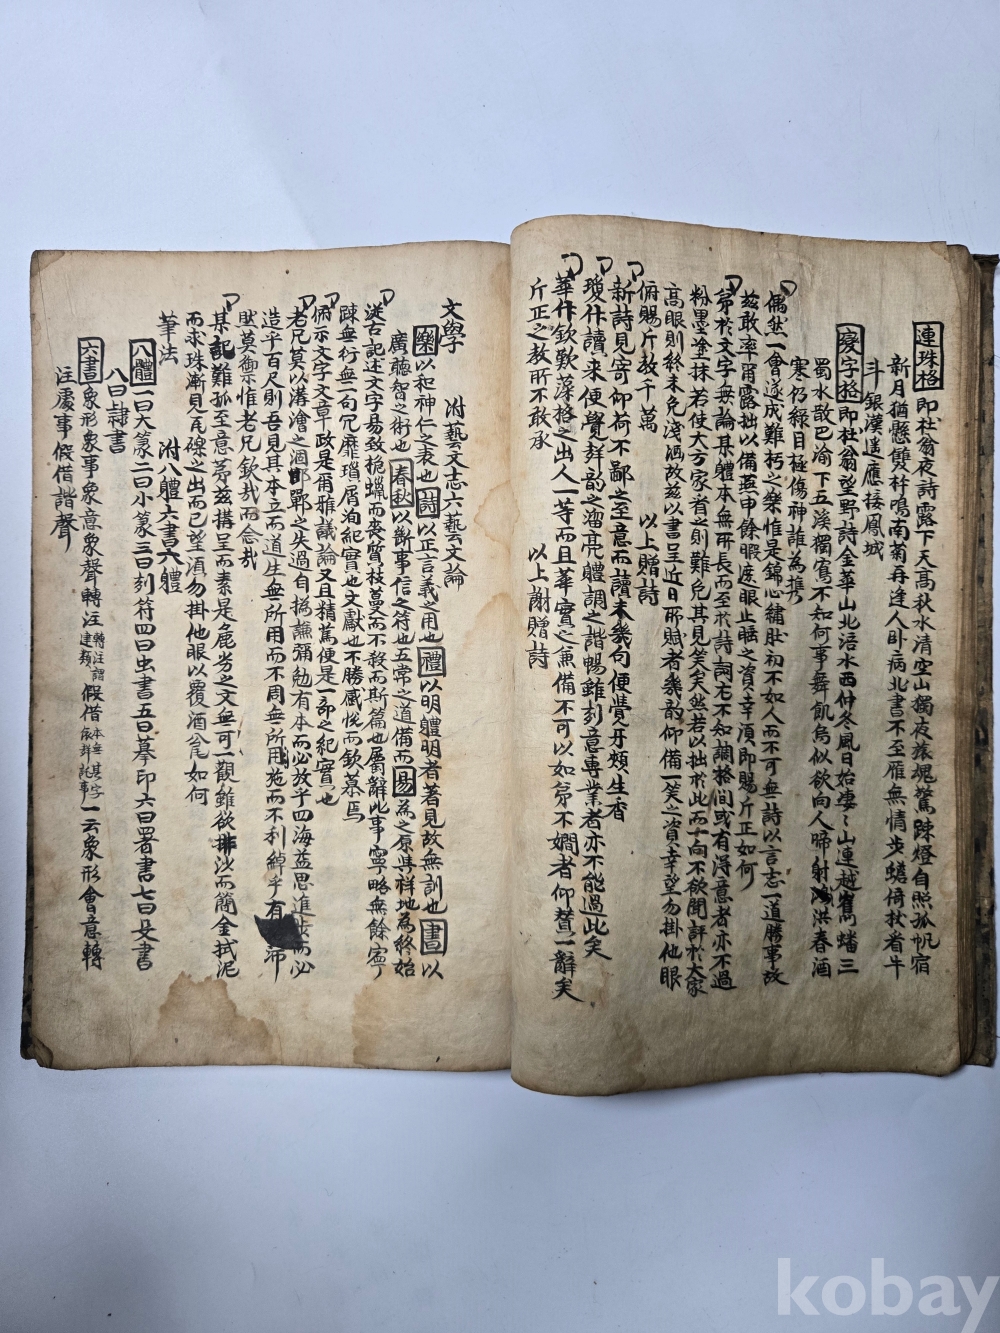 連珠格即杜翁夜詩露下天高秋水清空山獨夜旅魂驚踈燈自照孤帆宿
新月猶懸雙杵鳴南菊再逢人卧病北書不至雁無情步蟾倚杖看牛
斗銀漢遙應接鳳城
格即杜翁望野詩金華山北涪水西仲冬風日始凄〻山連越嶲蟠三
蜀水散巴渝下五溪獨鶴不知何事舞飢烏似欲向人啼射洪春酒
寒仍綠目極傷神誰為携
偶然一會遂成難朽之樂惟是錦心繡肚初不如人而不可無詩以言志一道勝事故
茲敢率爾露拙以備燕申餘暇遮眼止睡之資幸須即賜斤正如何
第於文字毋論某體本無所長而至於詩詞尤不知調格間或有得意者亦不過
粉墨塗抹若使大方家者則難免其見笑矣然若以拙於此而一向不欲聞評於大家
高眼則終未免淺涸故茲以書呈近日所賦者幾首仰備一笑之資幸望勿掛他眼
俯賜斤教千萬 以上贈詩
新詩見寄仰荷不鄙之至意而讀未幾句便覺牙頰生香
瓊什讀來便覺群韵之瀏亮體調之諧暢雖刻意專業者亦不能過此矣
華什欽歎藻格之出人一等而且華實之兼備不可以如第不嫺者仰贊一辭矣
斤正之教所不敢承 以上謝贈詩
文學 附藝文志六藝文論
樂以和神仁之表也詩以正言義之用也禮以明體明者著見故無訓也書以
廣聽智之術也春秋以斷事信之符也五常之道備而易為之原與天地為終始
從古記述文字易致梔蠟而喪質枝蔓而不殺而斯篇也屬辭比事寧略無餘寧
踈無衍無一句冗靡瑣屑洵紀實也文獻也不勝感悅而欽慕焉
俯示文字文章政是爾雅議論又且精篤便是一部之紀實也
老兄莫以溝澮之涸邯鄲之失過自撝謙彌勉有本而必放乎四海益思進步而必
造乎百尺則吾見其本立而道生無所用而不周無所施而不利綽乎有 沛
猷莫禦惟老兄欽哉而念哉
某記難孤至意茅茲搆呈而素是鹿劣之文無可一觀雖欲排沙而簡金拭泥
而求珠漸見瓦礫之出而已望須勿掛他眼以覆酒瓮如何
筆法 附八體六書六體
八體一曰大篆二曰小篆三曰刻符四曰虫書五曰摹印六曰署書七曰殳書
八曰隷書
六書象形象事象意象聲轉注轉注謂建類假借本無其字依聲託事一云象形會意轉
注處事假借諧聲
kobay